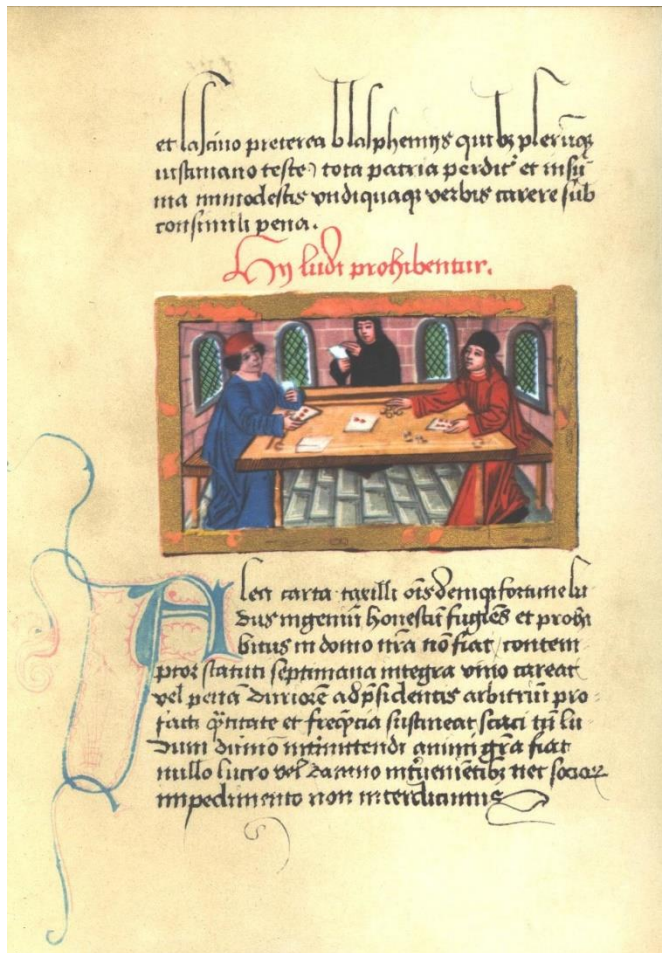 et lascino preterea blasphemijs quibz plerūqz
iustiniano teste, tota patria perdit' et in sū
ma inmodestis vndiquaqz verbis carere sub
consimili pena.
Hij ludi prohibentur.
Alea carta taxilli oīs deniqz fortune lu
dus ingeniū honestū fugiēs et prohi
bitus in domo nr̄a nō fiat, contem
ptor statuti septimana integra vino careat
vel penā duriorē ad p̄sidentis arbitriū pro
facti q̄titate et freq̄cia sustineat scaci tn̄ lu
dum animi grā fiat
nullo lucro vel damno int'uenientibz nec socioꝝ
impedimento non interdicimus